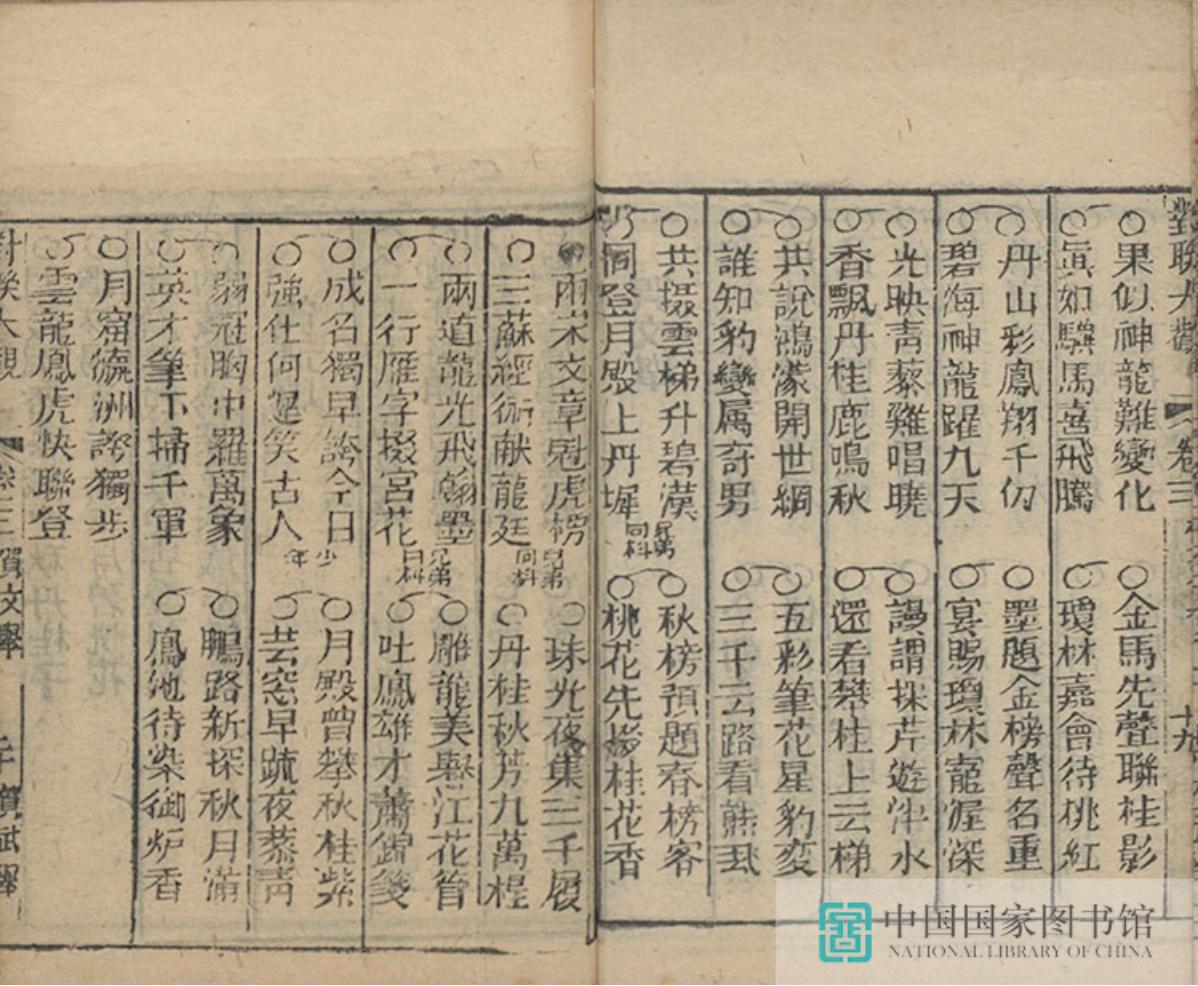 對聯大觀 卷三 十九
果似神龍難變化
金馬先聲聯桂影
真如驥馬喜飛騰
瓊林嘉會待桃紅
丹山彩鳳翔千仞
墨題金榜聲名重
碧海神龍躍九天
宴賜瓊林寵渥深
光映青藜雞唱曉
謾謂採芹遊泮水
香飄丹桂鹿鳴秋
還看攀桂上云梯
共說鴻濛開世網
五彩筆花星豹変
誰知豹變属奇男
三千云路看熊
共摄雲梯升碧漢
兄弟同科
秋榜預題春榜客
仍同登月殿上丹墀
桃花先椤桂花香
兩宋文章魁虎榜
兄弟同科
珠光夜集三千履
三蘇經術献龍廷
丹桂秋芳九萬程
兩道龍光飛翰墨
兄弟同科
雕龍美興江花管
一行雁字掇宮花
吐鳳雄才蕭錦箋
成名獨早誇今日
少年
月殿曾攀秋桂紫
強仕何遲笑古人
芸窓早疏夜藜青
弱冠胸中羅萬象
鵬路新探秋月滿
英才筆下掃千軍
鳳池待染御炉香
月窟瀛洲誇獨步
雲龍鳳虎快聯登
對聯大觀 卷三 賀文舉 賀武舉
中国国家图书馆
NATIONAL LIBRARY OF CHINA